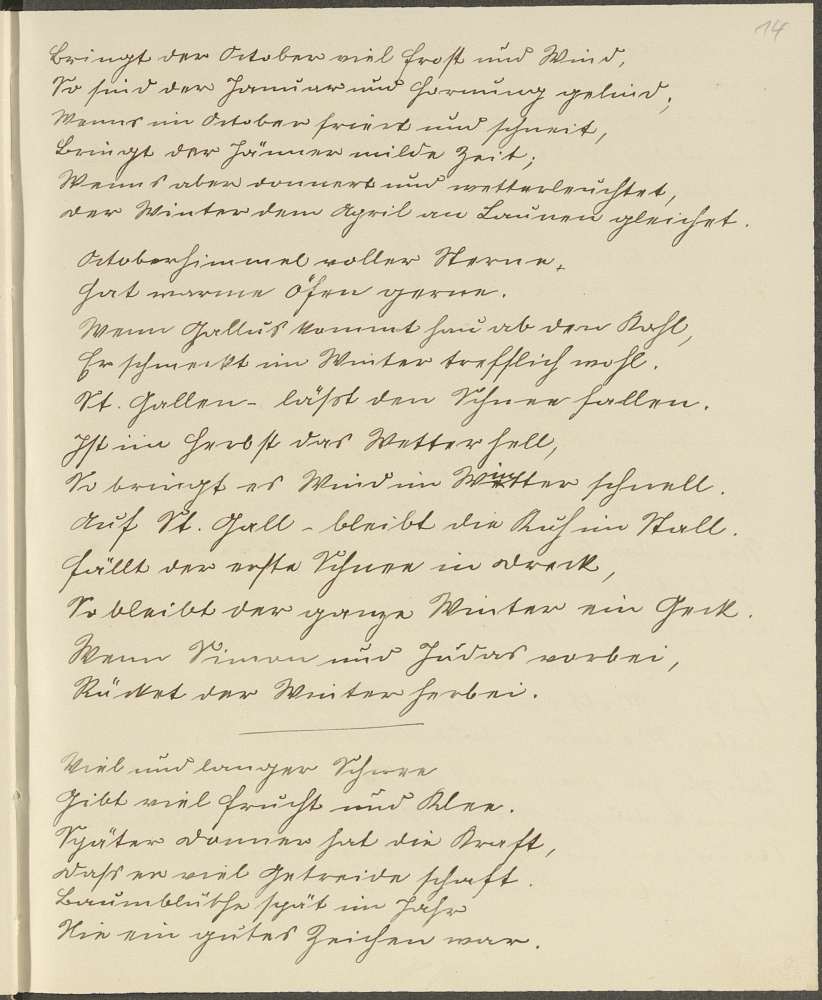 14
Bringt der October viel Frost und Wind,
So sind der Januar und Hornung gelind;
Wenns im October friert und schneit,
Bringt der Jänner milde Zeit;
Wenns aber donnert und wetterleuchtet,
Der Winter dem April an Launen gleichet.
Octoberhimmel voller Sterne,
Hat warme Öfen gerne.
Wenn Gallus kommt hau ab den Kohl,
Er schmeckt im Winter trefflich wohl.
St. Gallen - läßt den Schnee fallen.
Ist im Herbst das Wetter hell,
So bringt es Wind im Winter schnell.
Auf St. Gall - bleibt die Kuh im Stall.
Fällt der erste Schnee in Dreck,
So bleibt der ganze Winter ein Geck.
Wenn Simon und Judas vorbei,
Rücket der Winter herbei.
Viel und langer Schnee
Gibt viel Frucht und Klee.
Später Donner hat die Kraft,
Daß er viel Getreide schaft.
Baumblüthe spät im Jahr
Nie ein gutes Zeichen war.